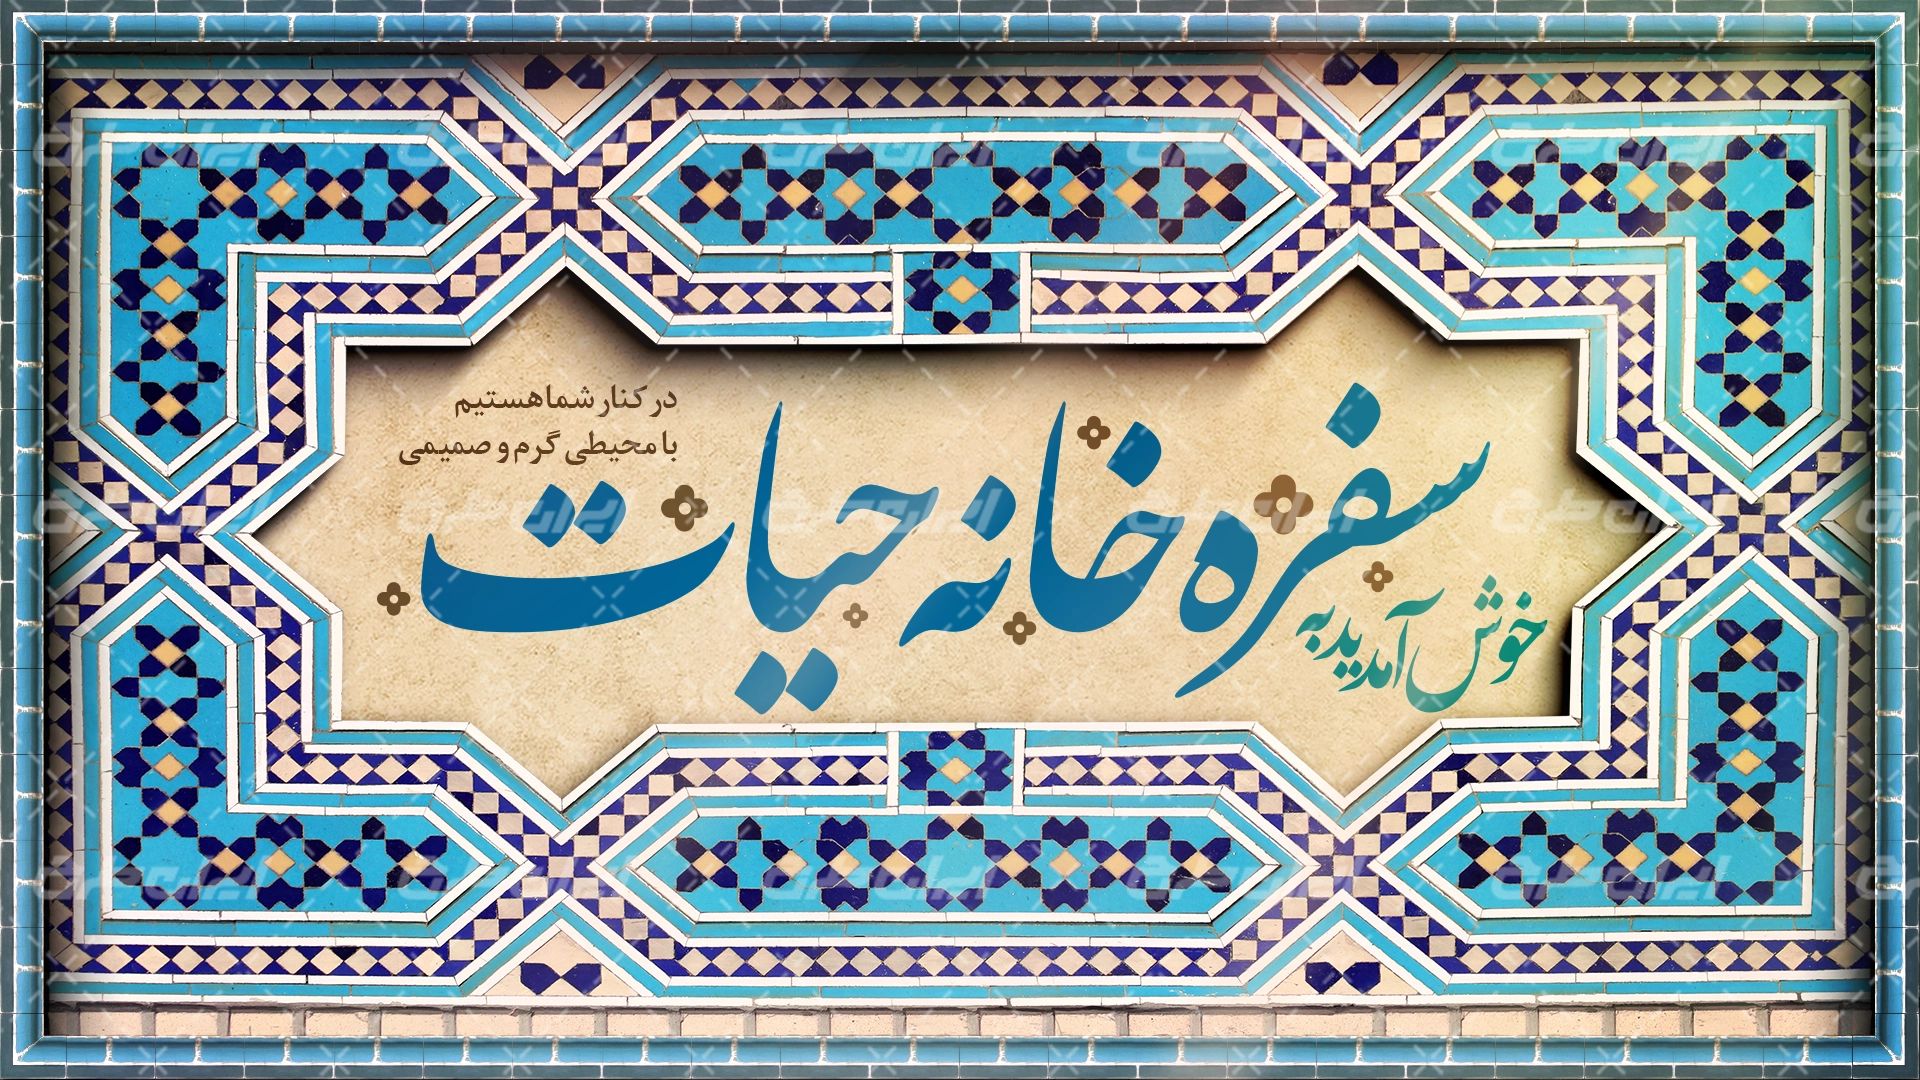 خوش آمدید به
سفره خانه حیات
در کنار شما هستیم
با محیطی گرم و صمیمی
ایران طرح